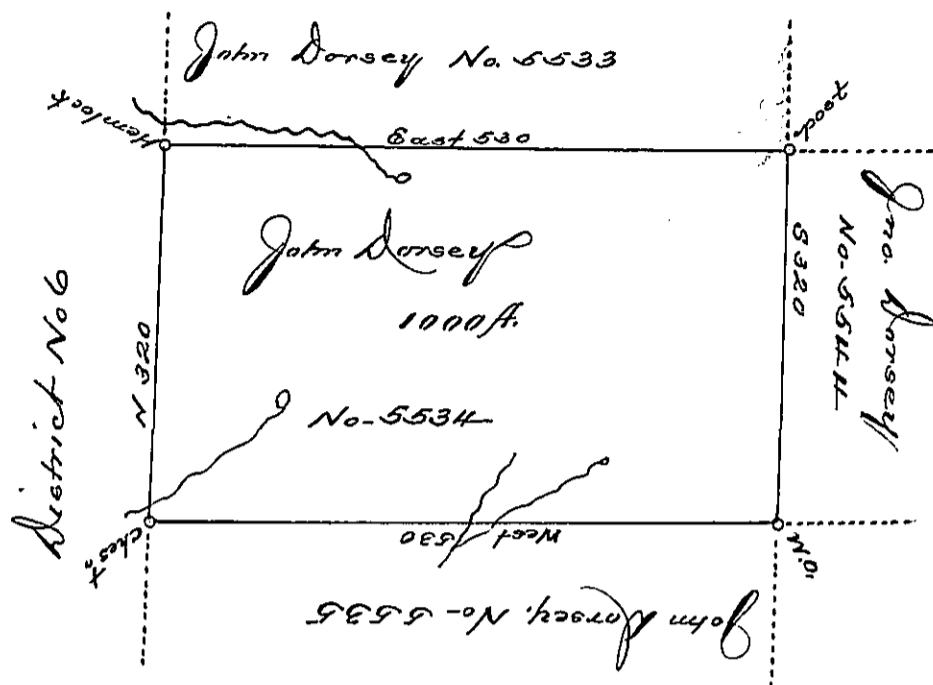 John Dorsey No. 5533
Hemlock
East 530
John Dorsey
1000 A.
No-5534
N 320
District No 6
S 320
Jno. Dorsey
No-5544
Ches.n
West
530
W.O.
John Dorsey, No-5535